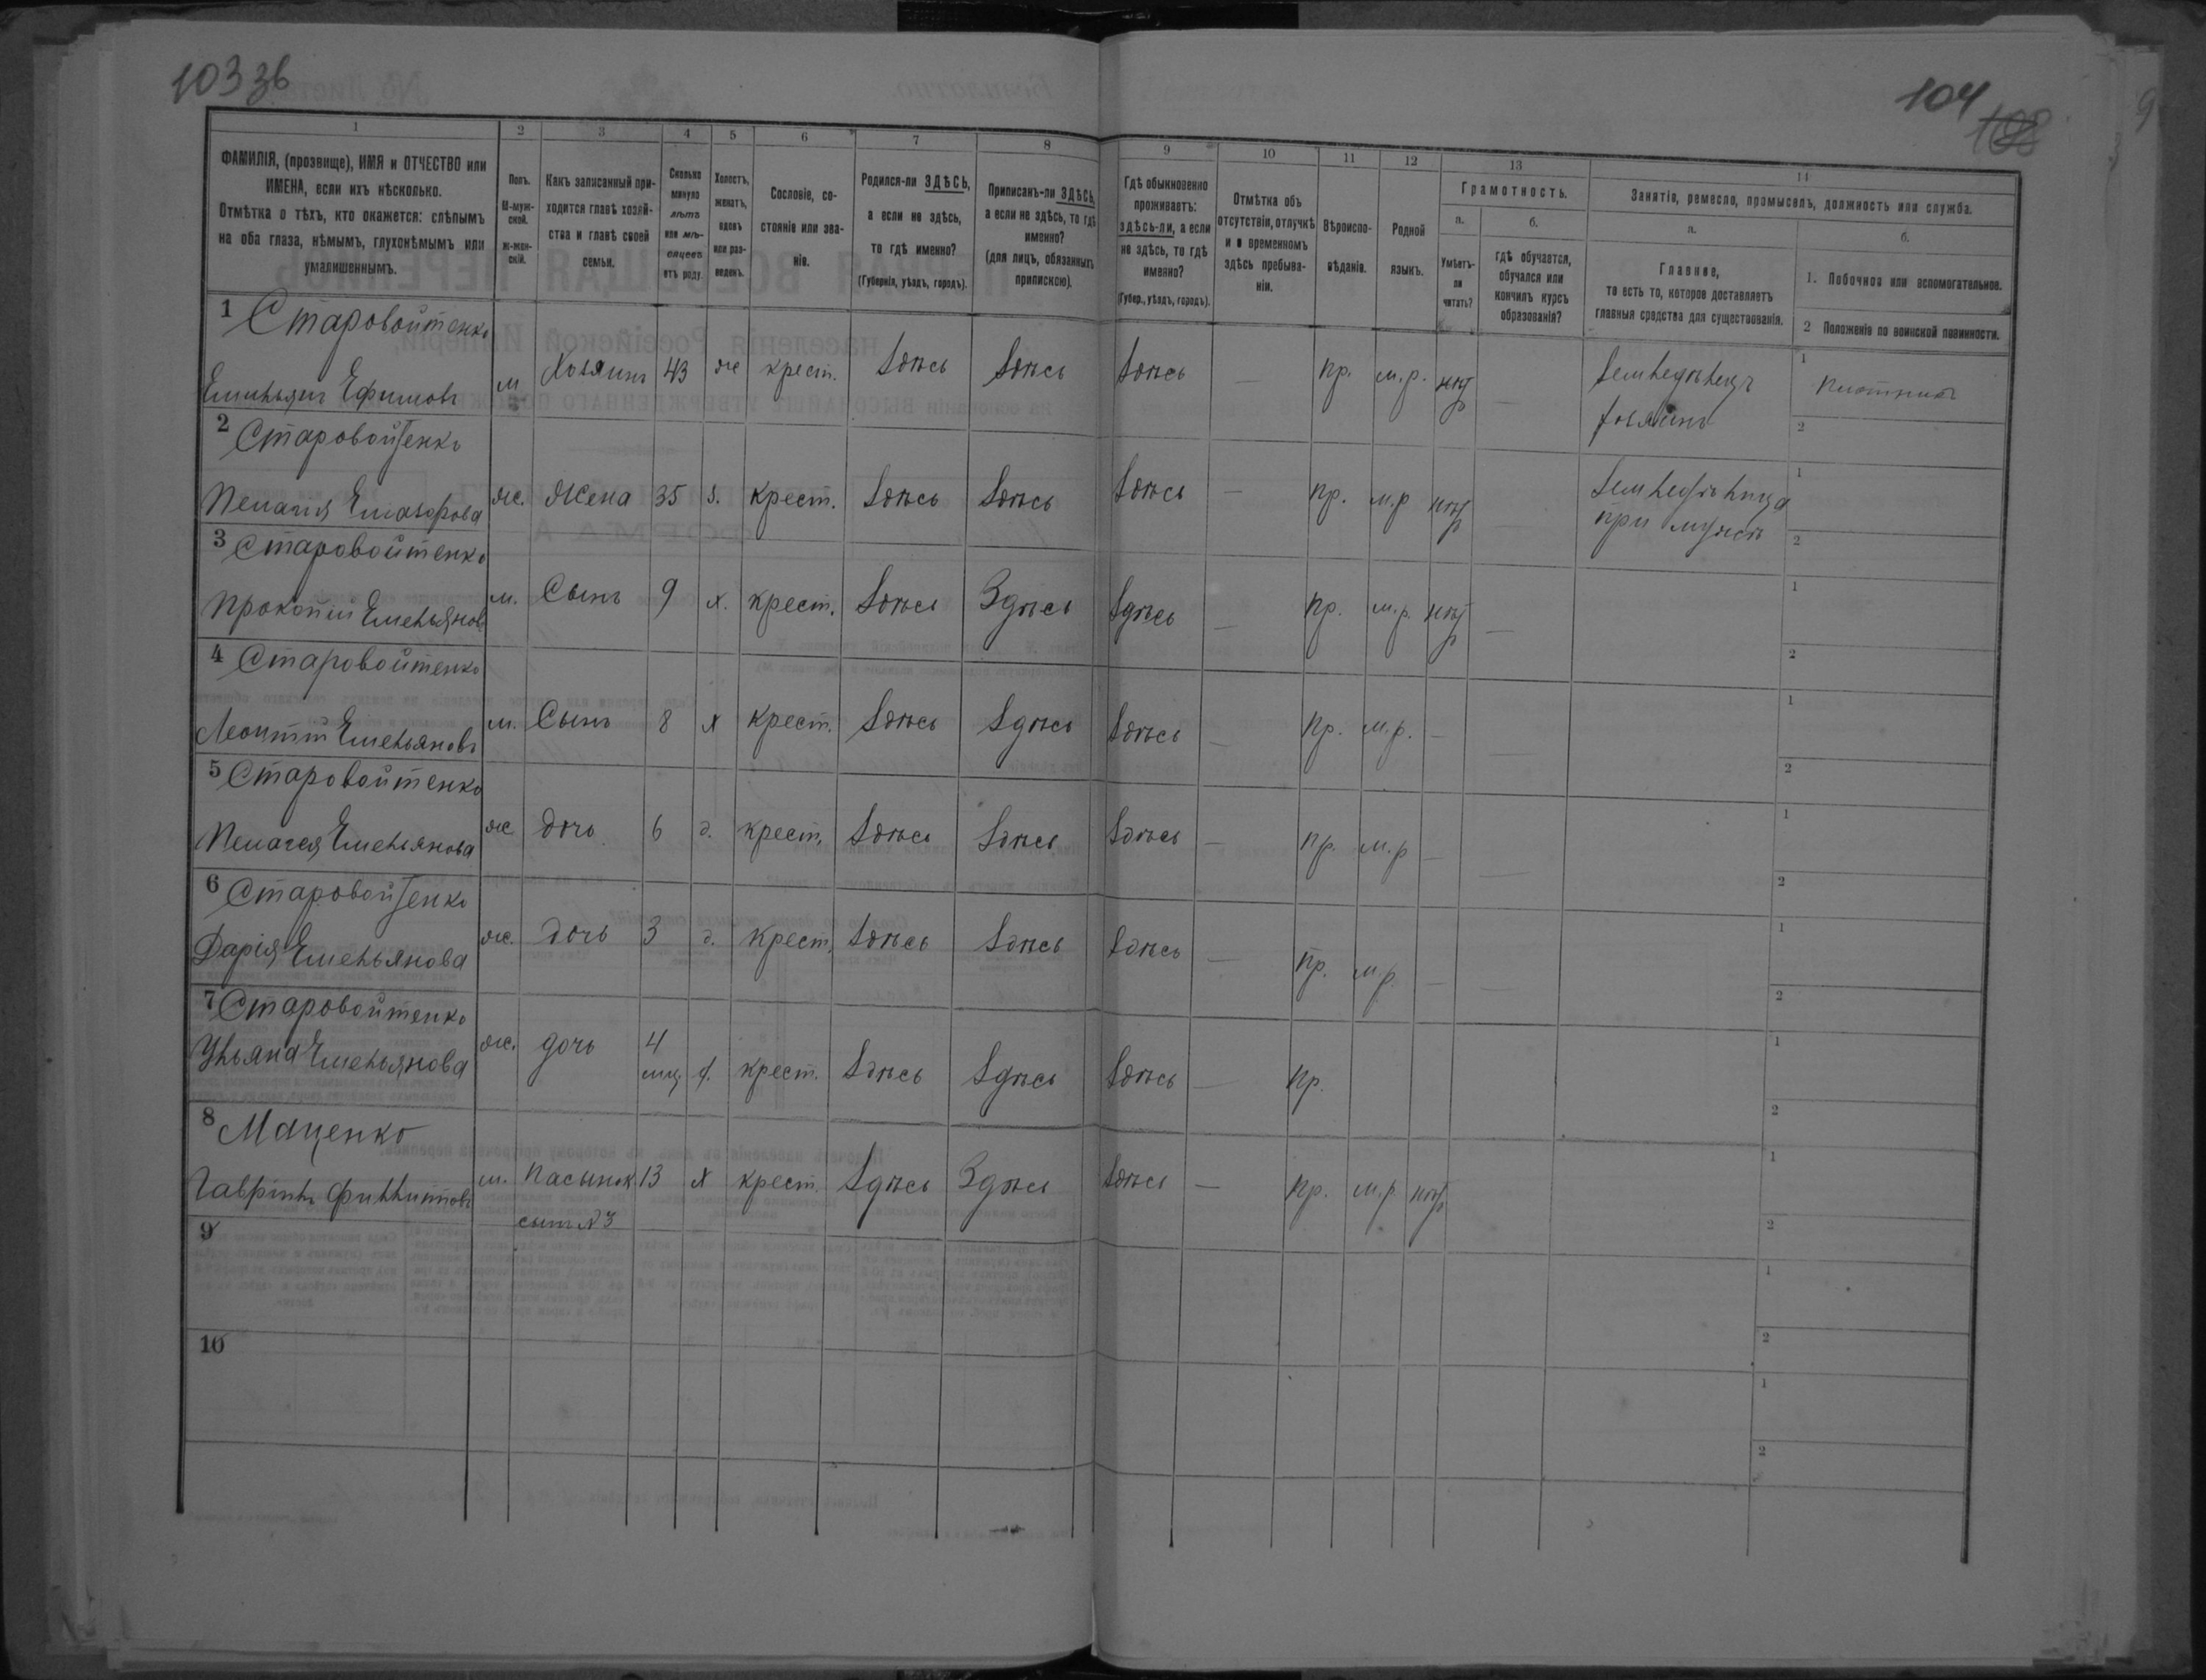 103 зв
104
108
1
2
3
4
5
6
7
8
9
10
11
12
13
14
ФАМИЛІЯ, (прозвище), ИМЯ и ОТЧЕСТВО или
ИМЕНА, если ихъ нѣсколько.
Отмѣтка о тѣхъ, кто окажется: слѣпымъ
на оба глаза, нѣмымъ, глухонѣмымъ или
умалишеннымъ.
Полъ.
М-муж-
ской.
Ж-жен-
скій.
Какъ записанный при-
ходится главѣ хозяй-
ства и главѣ своей
семьи.
Сколько
минуло
лѣтъ
или мѣ-
сяцевъ
отъ роду.
Холостъ,
женатъ,
вдовъ
или раз-
веденъ.
Сословіе, со-
стояніе или зва-
ніе.
Родился-ли ЗДѢСЬ,
а если не здѣсь,
то гдѣ именно?
(Губернія, уѣздъ, городъ).
Приписанъ-ли ЗДѢСЬ,
а если не здѣсь, то гдѣ
именно?
(для лицъ, обязанныхъ
припискою).
Гдѣ обыкновенно
проживаетъ:
ЗДѢСЬ-ЛИ, а если
не здѣсь, то гдѣ
именно?
(Губер., уѣздъ, городъ).
Отмѣтка объ
отсутствіи, отлучкѣ
и о временномъ
здѣсь пребыва-
ніи.
Вѣроиспо-
вѣданіе.
Родной
языкъ.
Грамотность.
а.
Умѣетъ-
ли
читать?
б.
гдѣ обучается,
обучался или
кончилъ курсъ
образованія?
Занятія, ремесло, промыселъ, должность или служба.
а.
Главное,
то есть то, которое доставляетъ
главныя средства для существованія.
б.
1. Побочное или вспомогательное.
2 Положеніе по воинской повинности.
1 Старовойтенко
Емильянъ Ефимовъ м Хозяинъ 43 ж крест. Здѣсь Здѣсь Здѣсь — пр. м.р. нѣт — Земледѣлецъ 1 плотникъ
хозяинъ 2
2 Старовойтенко
Пелагия Елиазорова ж. Жена 35 з. крест. Здѣсь Здѣсь Здѣсь — пр. м.р нѣт — Земледѣлица 1
при мужѣ 2
3 Старовойтенко
Прокопій Емельянов м. Сынъ 9 х. крест. Здѣсь Здѣсь Здѣсь — пр. м.р. нѣт — 1
2
4 Старовойтенко
Леонтій Емельяновъ м. Сынъ 8 х крест. Здѣсь Здѣсь Здѣсь — пр. м.р. — — 1
2
5 Старовойтенко
Пелагея Емельянова ж дочь 6 д. крест. Здѣсь Здѣсь Здѣсь — пр. м.р — — 1
2
6 Старовойтенко
Дарія Емельянова ж. дочь 3 д. крест. Здѣсь Здѣсь Здѣсь — пр. м.р. — — 1
2
7 Старовойтенко
Ульяна Емельянова ж. дочь 4
мц. д. крест. Здѣсь Здѣсь Здѣсь — пр. 1
2
8 Маценко
Гаврiилъ Филлиповъ м. Пасынок 13 х крест. Здѣсь Здѣсь Здѣсь — пр. м.р. нѣт 1
сынъ № 3 2
9
1
2
10
1
2